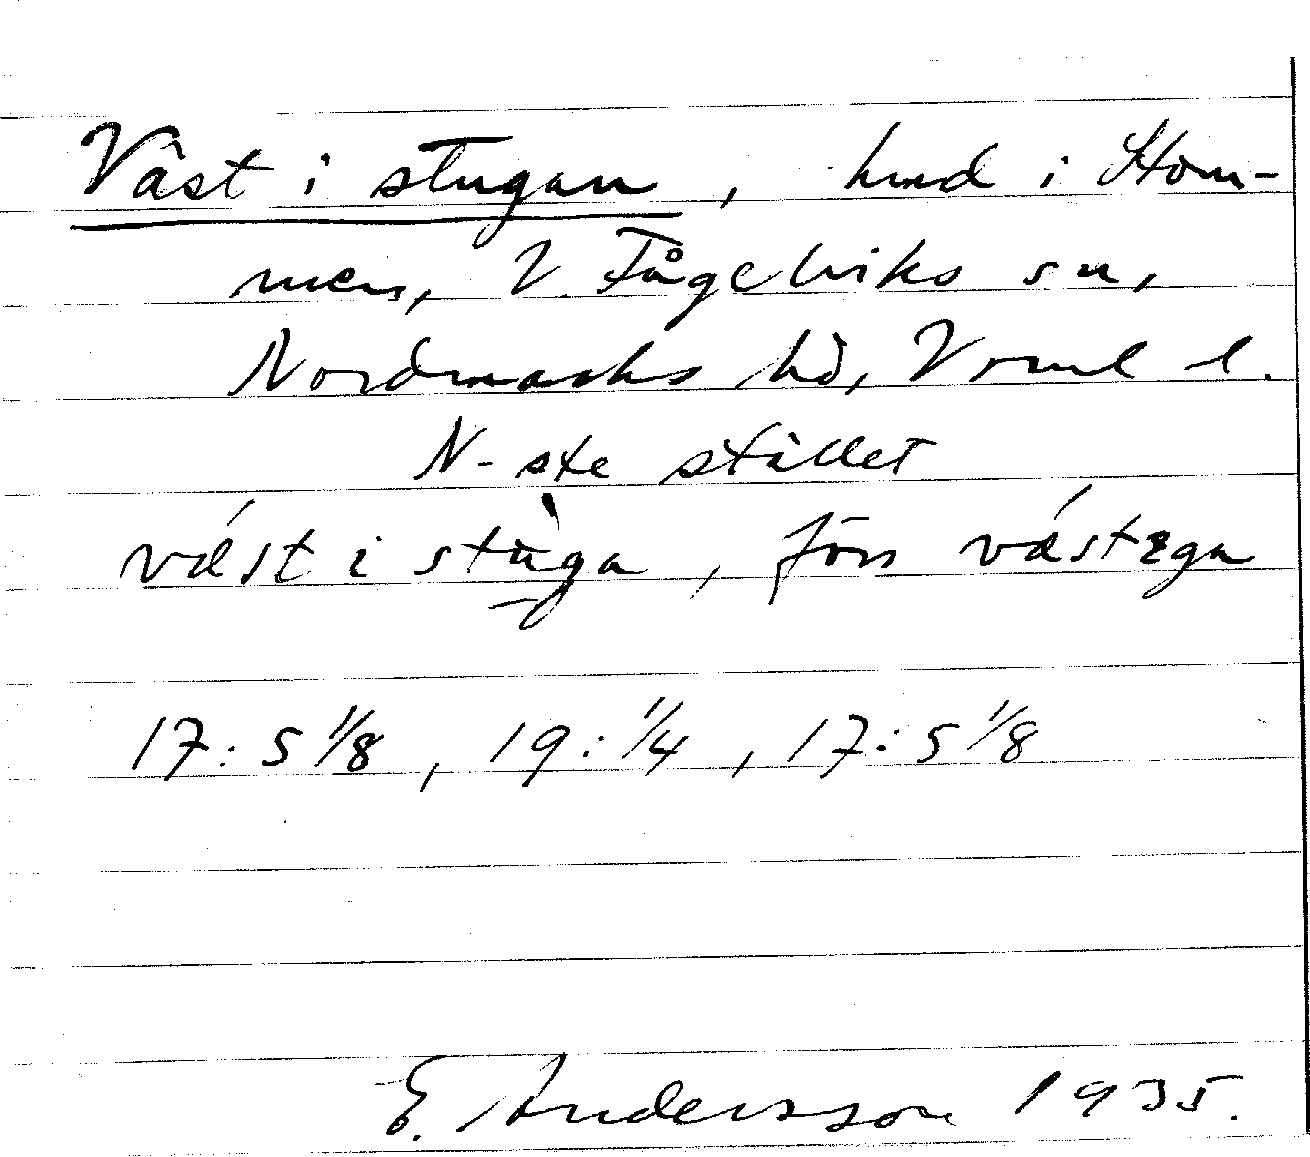 Väst i stugan, hmd i Hom-
men, V. Fågelviks sn,
Nordmarks hd, Vrml l.
N-ste stället
väst i stùga, förr västega
17: 5 1/8, 19: 1/4, 17: 5 1/8
E. Andersson 1935.